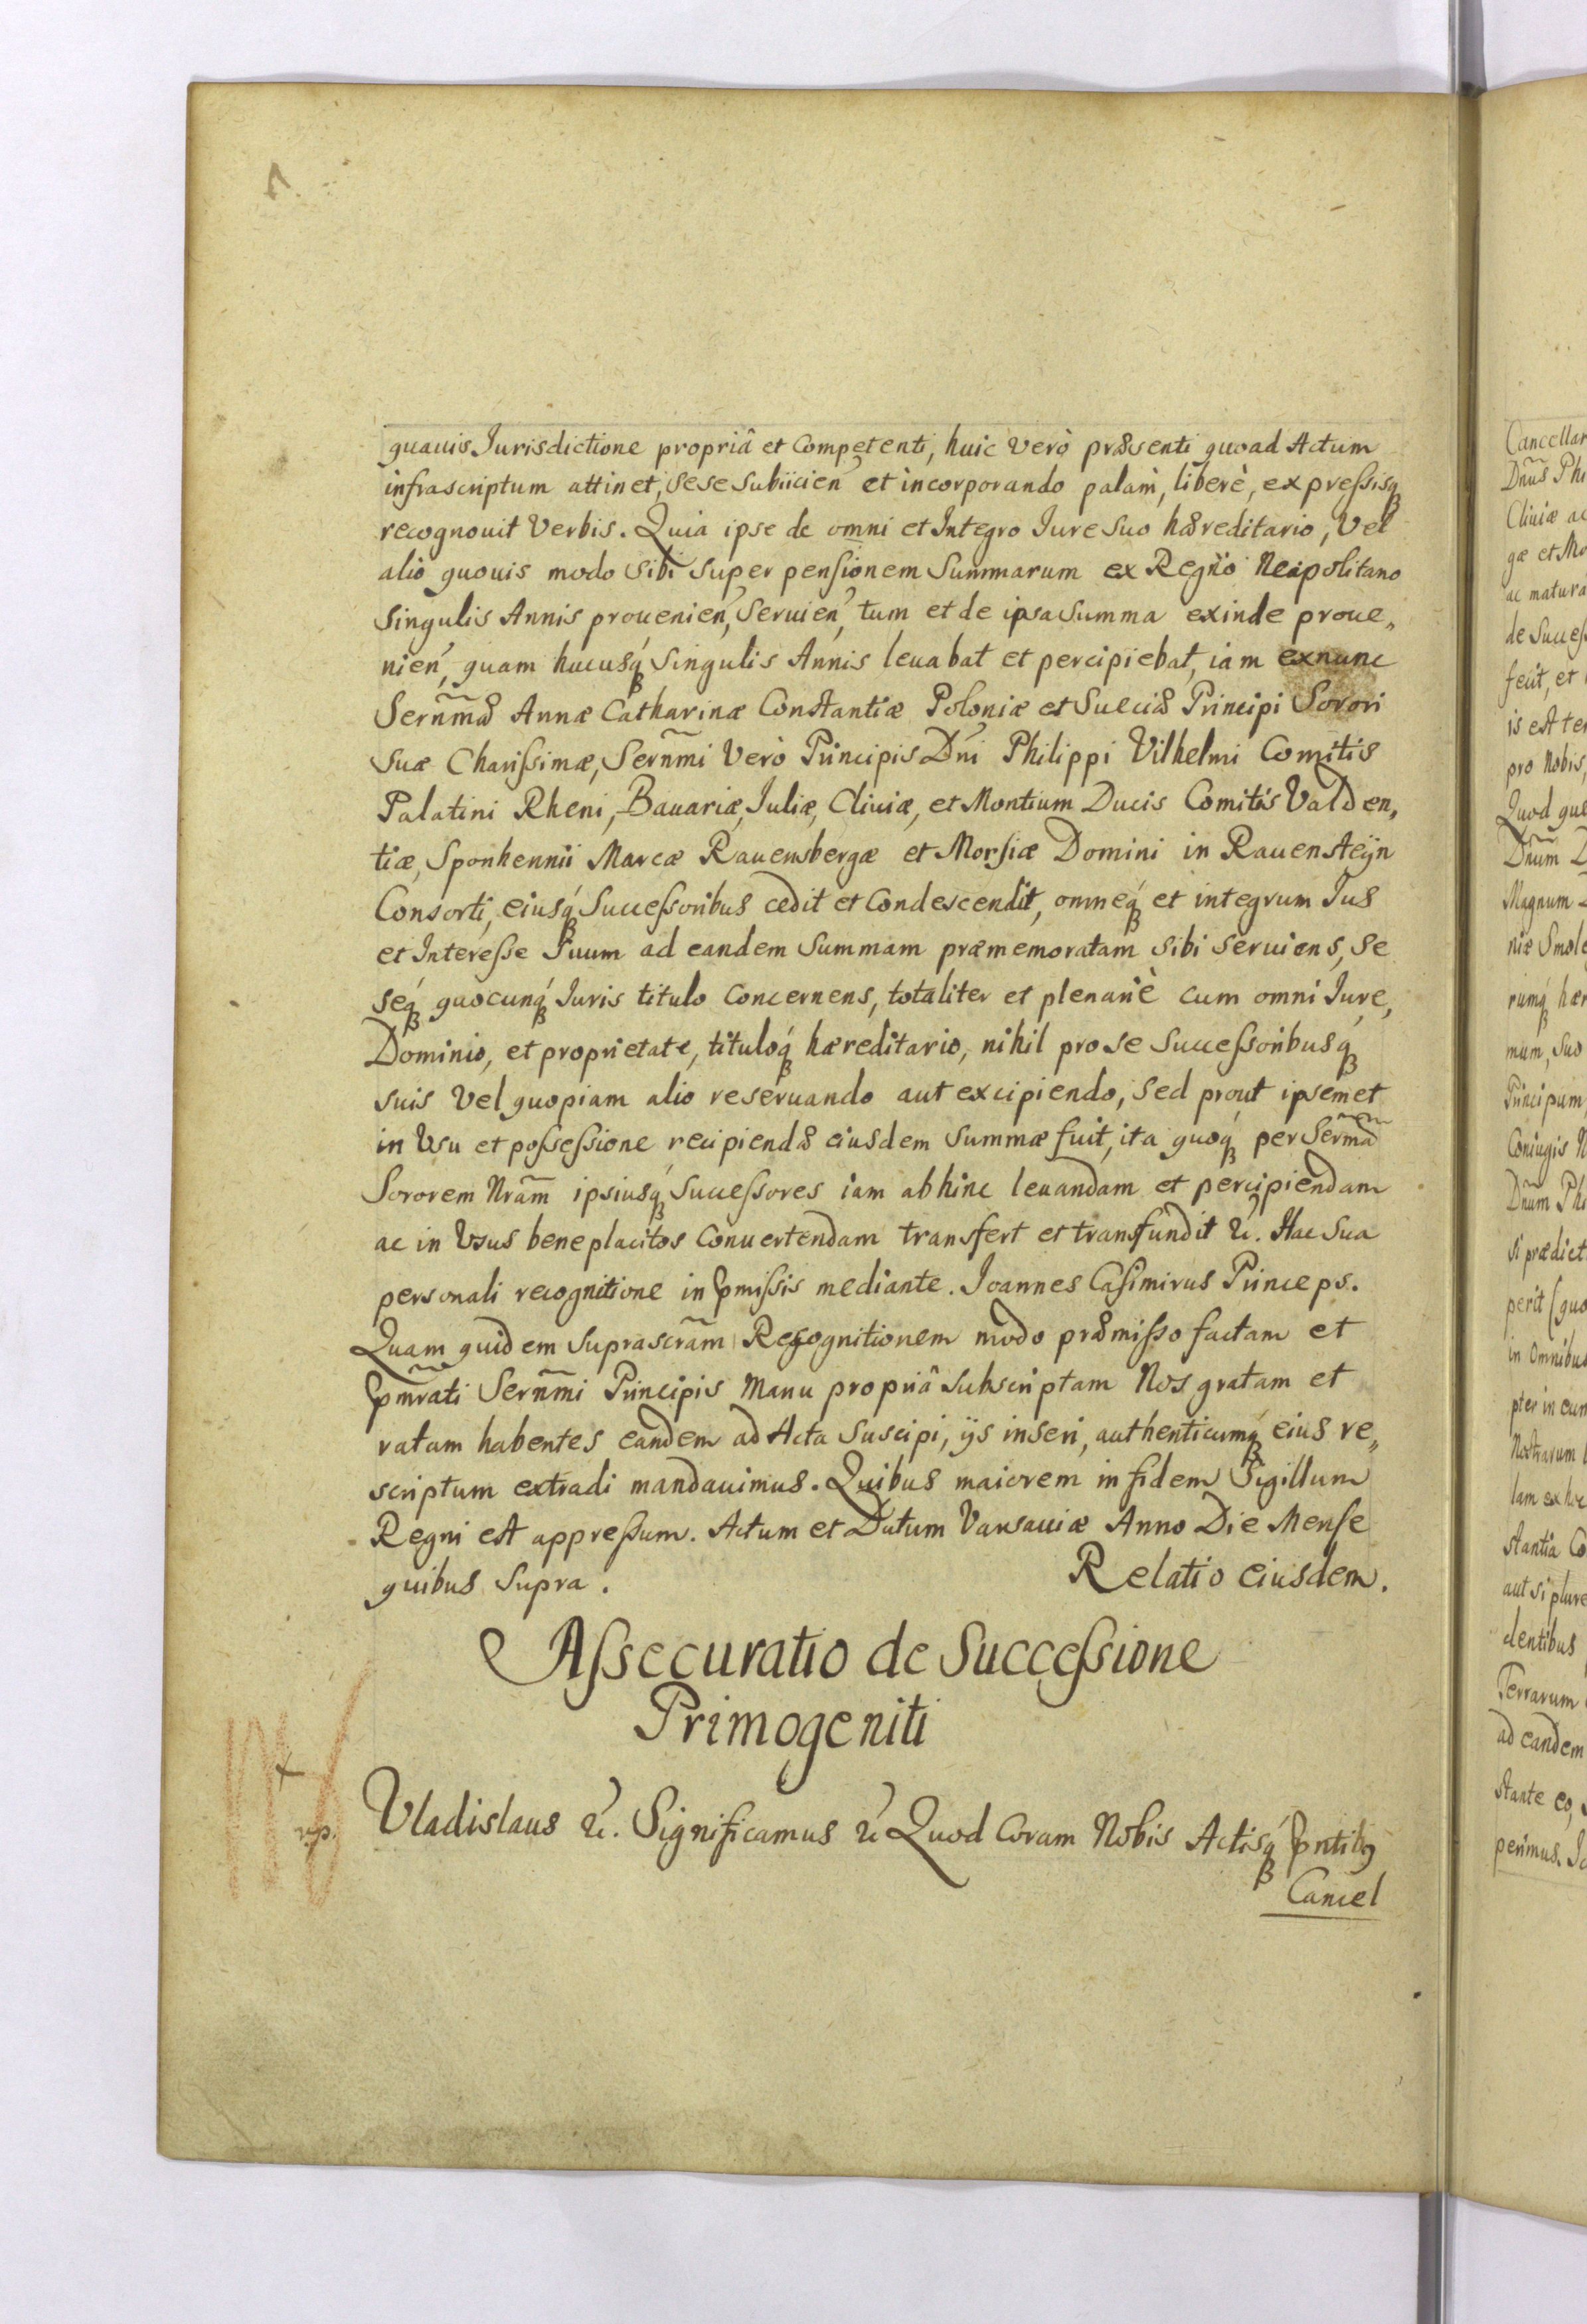 quauis Jurisdictione propriâ et Competenti, huic Verò præsenti quoad Actum
infrascriptum attinet, sese subiicień et incorporando palam, liberè, expreſsisq́
recognouit Verbis. Quia ipse de omni et Integro Jure Suo hæreditario, Vel
alio quouis modo sibi super pensionem Summarum ex Regno Neapolitano
singulis Annis prouenień, seruień, tum et de ipsa summa exinde proue„
nień, quam hucusq́ singulis Annis leuabat et percipiebat, iam exnunc
Serñmæ Annæ Catharinæ Constantiæ Poloniæ et Sueciæ Principi Sorori
suæ Chariſsimæ, Serñmi Verò Principis Dńi Philippi Vilhelmi Comitis
Palatini Rheni, Bauariæ, Juliæ, Cliuiæ, et Montium Ducis Comitis Valden„
tiæ, Sponhennii Marcæ Rauensbergæ et Morsiæ Domini in Rauensteÿn
Consorti, eiusq́ Succeſsoribus cedit et Condescendit, omneq́ et integrum Jus
et Intereſse suum ad eandem summam præmemoratam sibi seruiens, se
seq́ quocunq́ Juris titulo concernens, totaliter et plenariè cum omni Jure,
Dominio, et proprietate, tituloq́ hæreditario, nihil pro se succeſsoribusq́
suis Vel quopiam alio reseruando aut excipiendo, sed prout ipsemet
in Usu et poſseſsione recipiendæ eiusdem summæ fuit, ita quoq́ per Sermãm
Sororem Nram̃ ipsiusq́ succeſsores iam abhinc leuandam et percipiendam
ac in Usus beneplacitos conuertendam transfert et transfundit &c. Hac sua
personali recognitione in p̃miſsis mediante. Joannes Casimirus Princeps.
Quam quidem suprascram̃ Recognitionem modo præmiſso factam et
p̃mrati Serñmi Principis Manu propriâ subscriptam Nos gratam et
ratam habentes eandem ad Acta suscipi, ijs inseri, authenticumq́ eius re„
scriptum extradi mandauimus. Quibus maiorem in fidem Sigillum
Regni est appreſsum. Actum et Datum Varsauiæ Anno Die Mense
quibus supra. Relatio eiusdem.
Aſsecuratio de Succeſsione
Primogeniti
Vladislaus &c. Significamus &c Quod Coram Nobis Actisq́ p̃ntibꝯ
Cancel